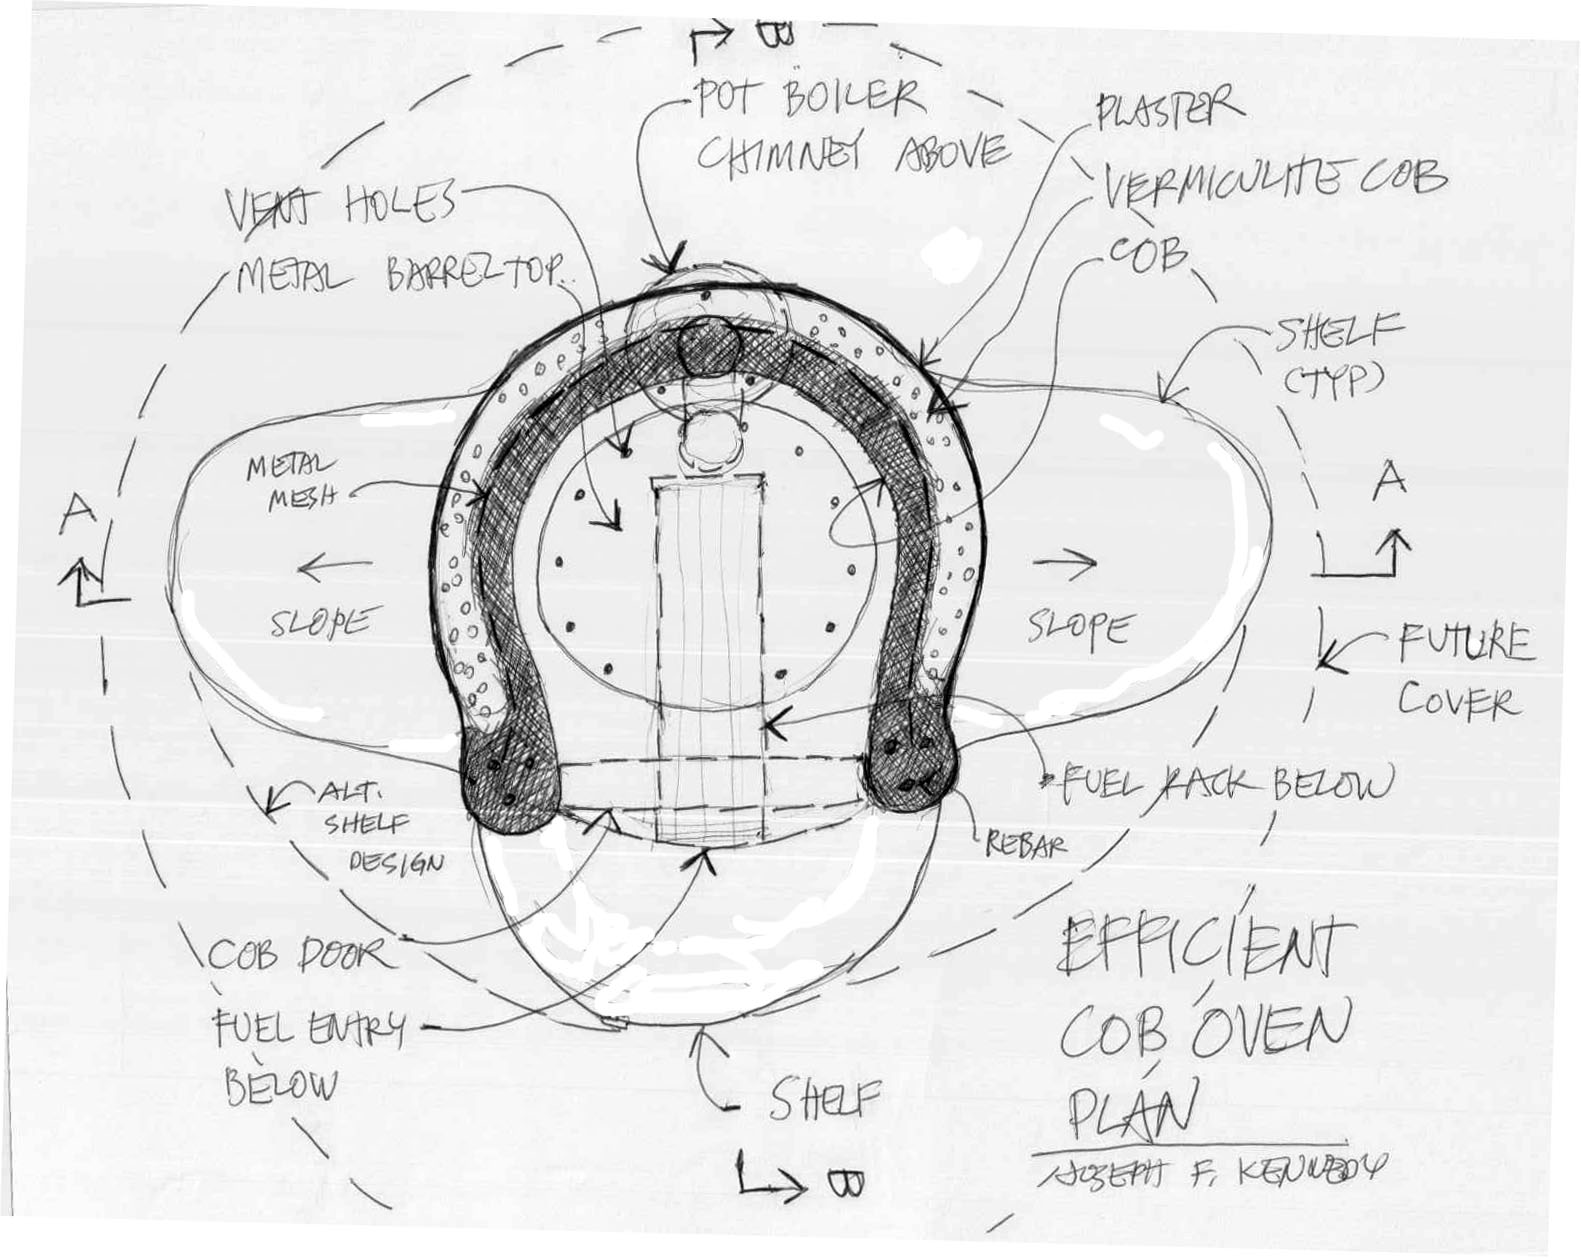 B
POT BOILER
CHIMNEY ABOVE
PLASTER
VERMICULITE COB
COB
VENT HOLES
METAL BARREL TOP
SHELF
(TYP)
METAL
MESH
A
A
SLOPE
SLOPE
FUTURE
COVER
ALT.
SHELF
DESIGN
FUEL RACK BELOW
REBAR
COB DOOR
FUEL ENTRY
BELOW
SHELF
B
EFFICIENT
COB OVEN
PLAN
JOSEPH F. KENNEDY